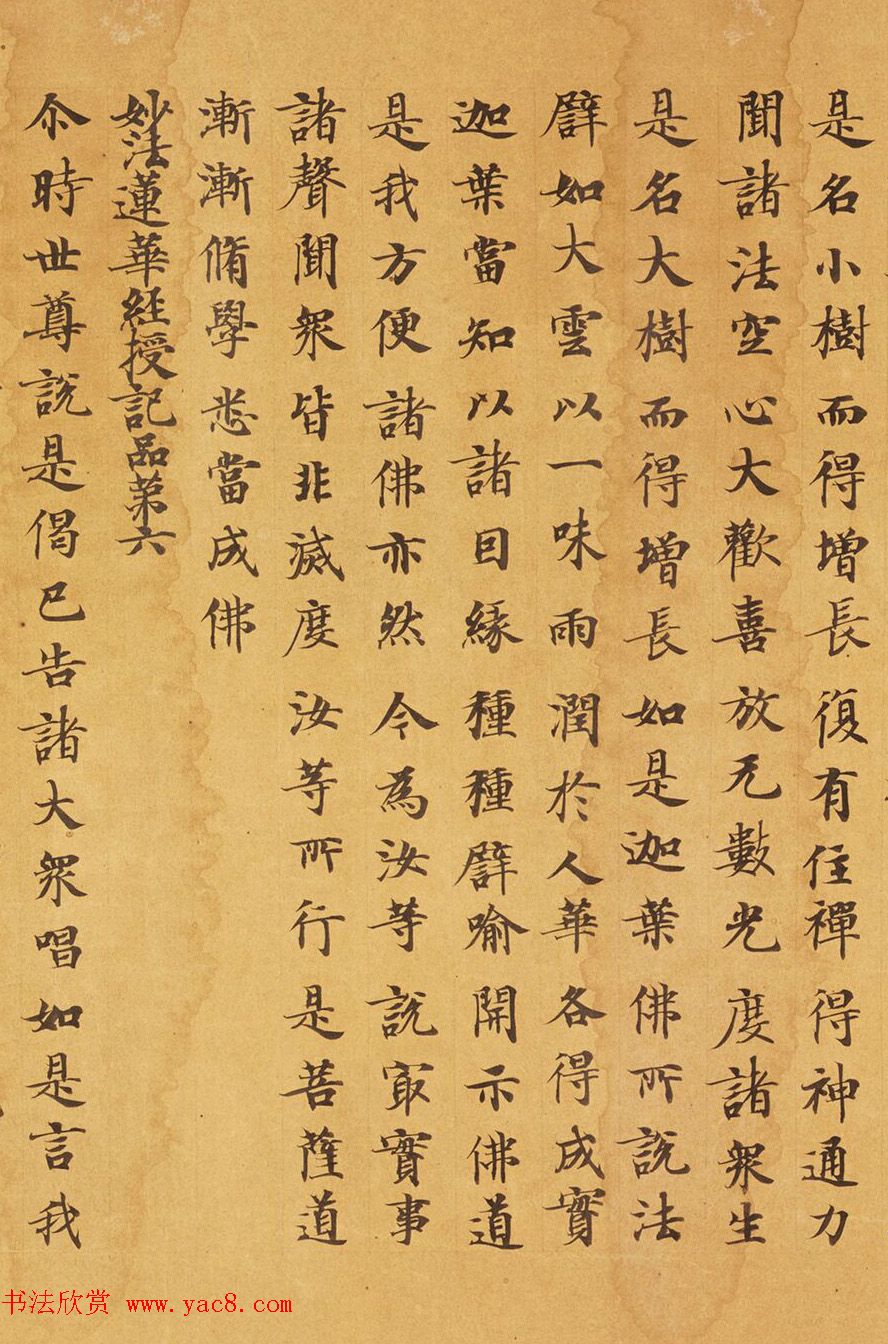 是名小樹而得增長復有住禪得神通力
聞諸法空心大歡喜放无數光度諸衆生
是名大樹而得增長如是迦葉佛所說法
譬如大雲以一味雨潤於人華各得成實
迦葉當知以諸因緣種種譬喻開示佛道
是我方便諸佛亦然今為汝等說冣實事
諸聲聞衆皆非滅度汝等所行是菩薩道
漸漸脩學悉當成佛
妙法蓮華經授記品第六
尒時世尊說是偈已告諸大衆唱如是言我
书法欣赏 www.yac8.com